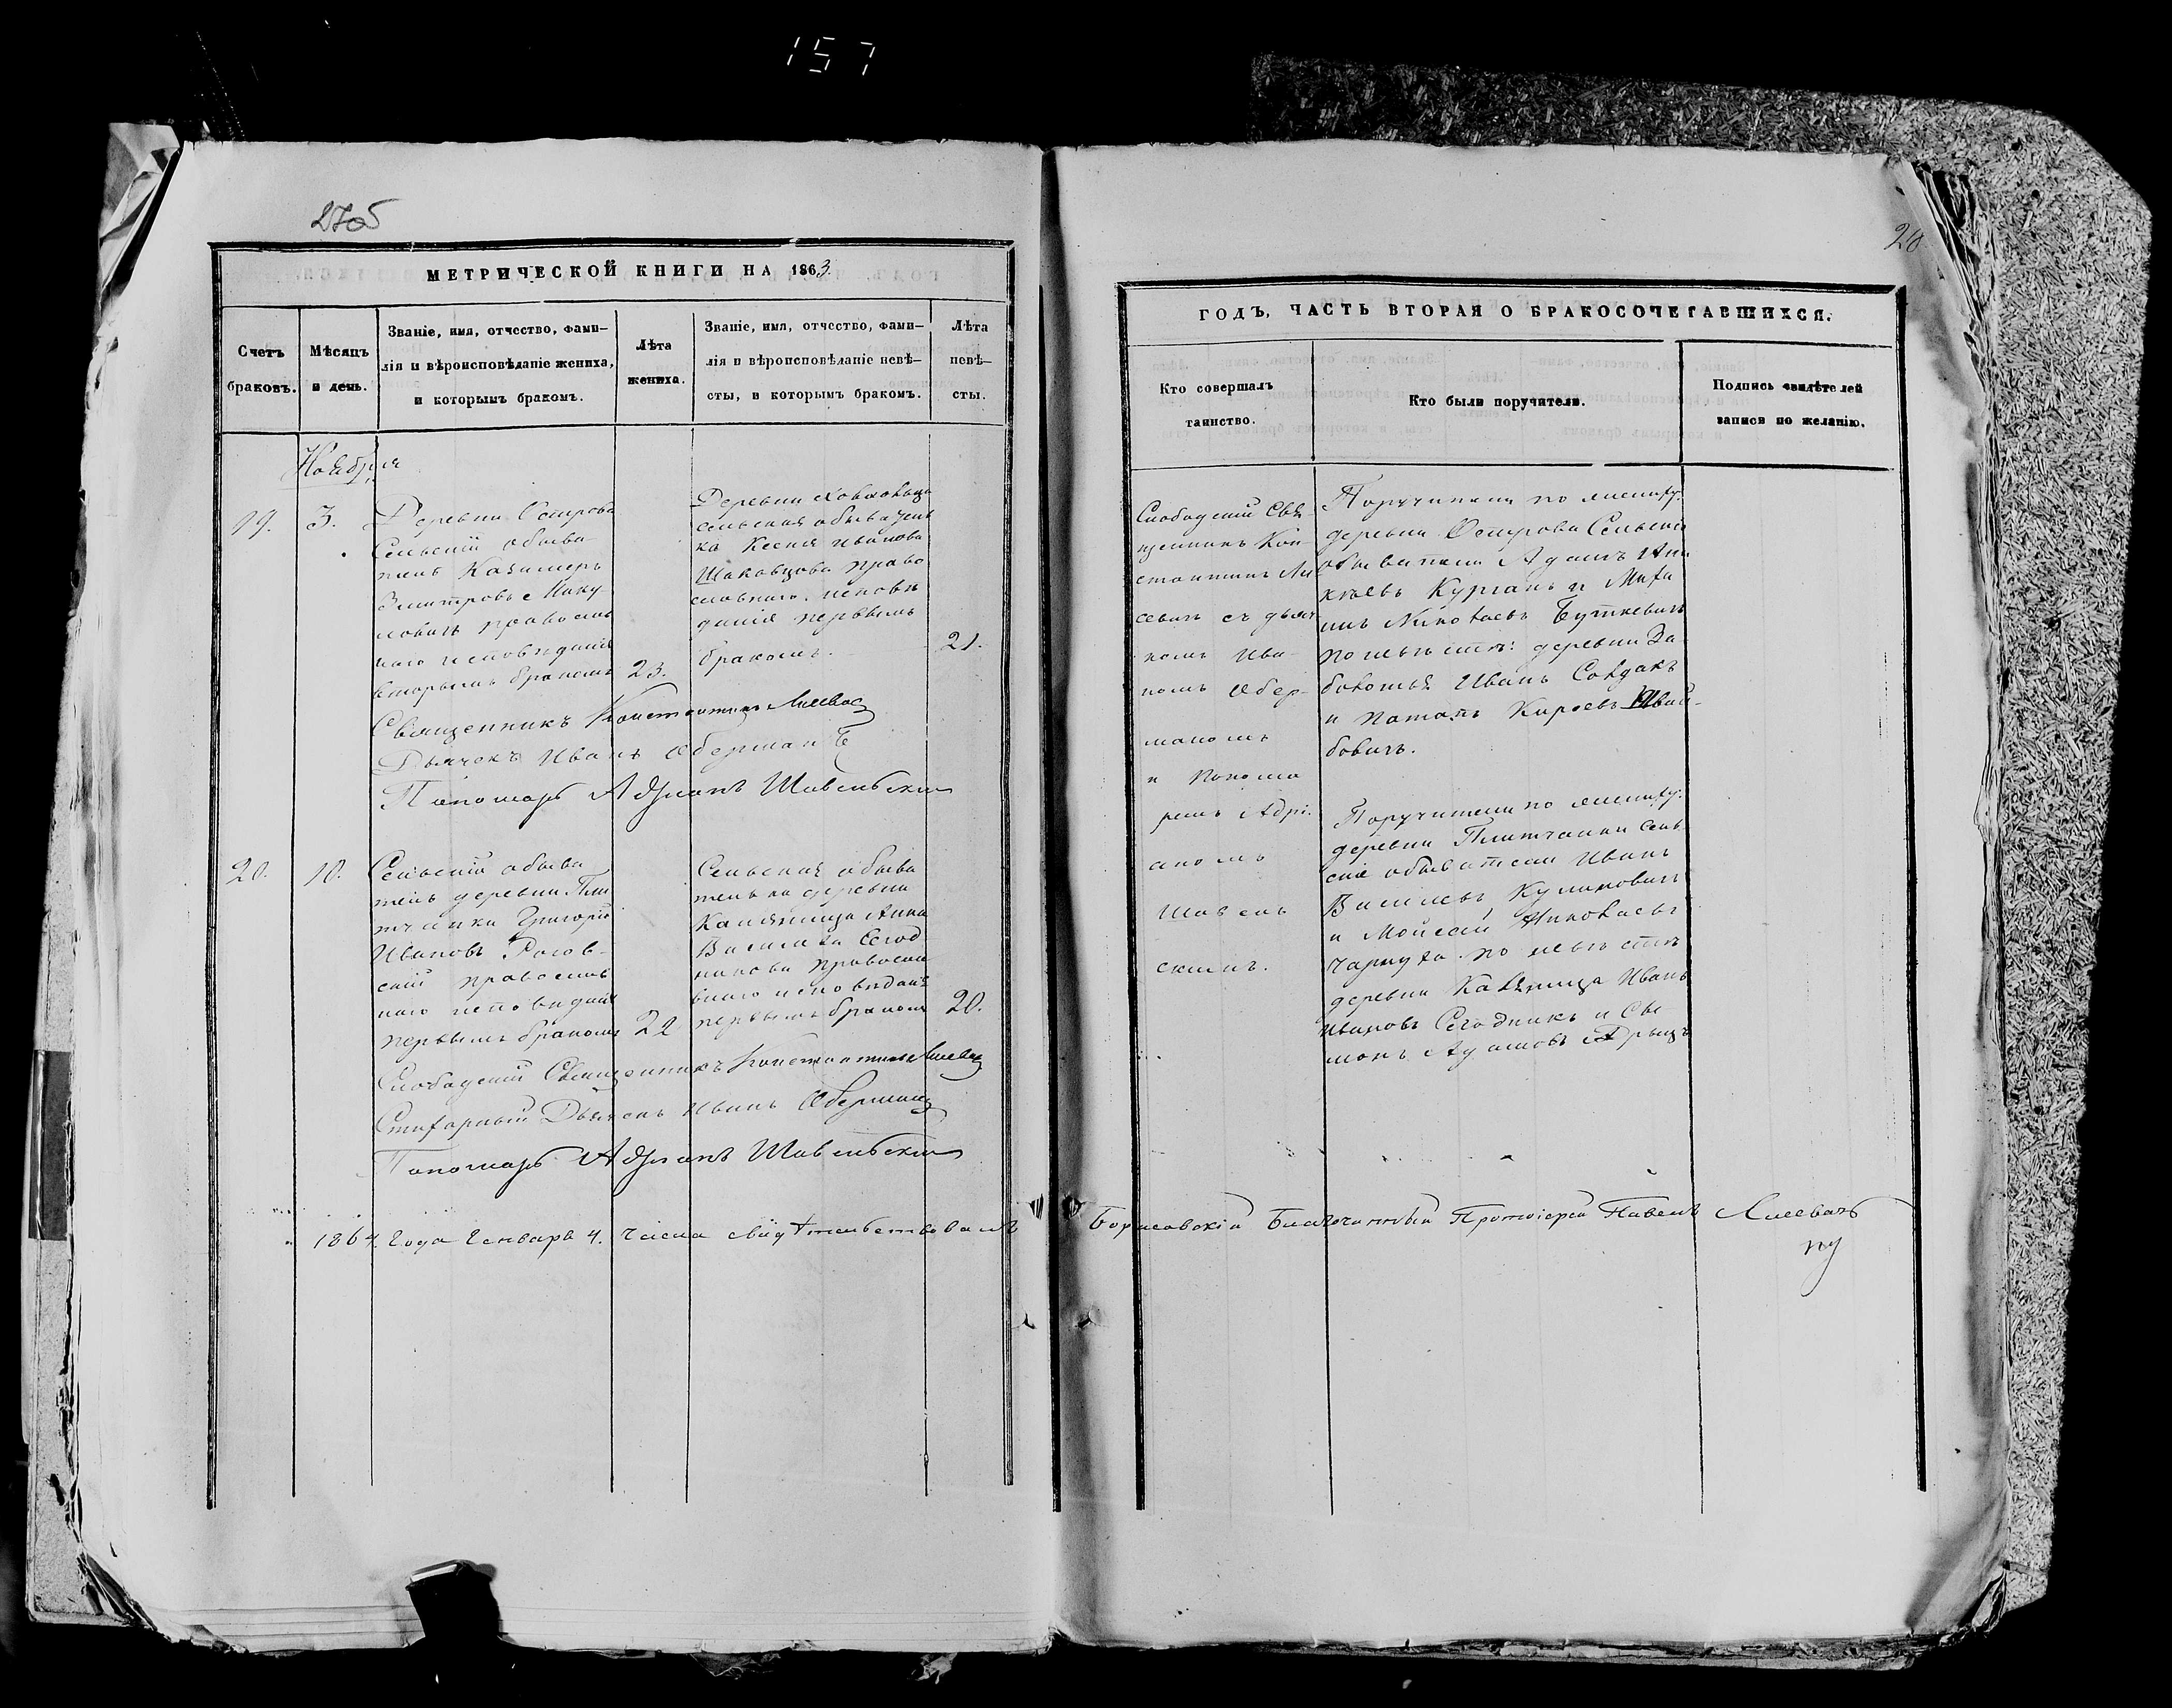 157
27об
28
МЕТРИЧЕСКОЙ КНИГИ НА 1863.
Счетъ
браковъ.
Мѣсяцъ
и день.
Званіе, имя, отчество, фами-
лія и вѣроисповѣданіе жениха,
и которымъ бракомъ.
Лѣта
жениха.
Званіе, имя, отчество, фами-
лія и вѣроисповѣданіе невѣ-
сты, и которымъ бракомъ.
Лѣта
невѣ-
сты.
Ноября
19.
3.
Деревни Острова
Сельскій обыва-
тель Казимеръ
Змитровъ
православ
наго исповѣданія
вторымъ бракомъ
23.
Деревни
сельская обыватель
ка Ксенія Иванова
Шаковцова право
славнаго исповѣ
данія первымъ
бракомъ.
21.
Священникъ Константинъ Лисевичъ
Дьячекъ Иванъ Оберманъ
Пономарь Адріанъ Шавельскій
20.
10.
Сельскій обыва
тель деревни Пли
тчанки Григорій
Ивановъ Росов-
скій православ
наго исповѣданія
первымъ бракомъ
22
Сельская обыва
телька деревни
Анна
Василева Сегод
никова православ
наго исповѣданія
первымъ бракомъ
20.
Слободскій Священникъ Константинъ Лисевичъ
Стихарный Дьячекъ Иванъ Оберманъ
Пономарь Адріанъ Шавельскій
1864. Года Генваря 4. числа свидѣтельствовалъ Борисовскій Благочинный Протоіерей Павелъ Лисевичъ
ГОДЪ, ЧАСТЬ ВТОРАЯ О БРАКОСОЧЕТАВШИХСЯ.
Кто совершалъ
таинство.
Кто были поручители.
Подпись свидѣтелей
записи по желанію.
Слободскій Свя-
щенникъ Кон-
стантинъ Ли
севичъ съ дьяч
комъ Ива-
номъ Обер-
маномъ
и Понома
ремъ Адрі-
аномъ
Шавель
скимъ.
Поручители по жениху:
деревни Острова Сельскіе
обыватели Адамъ
Курганъ и Миха
илъ Николаевъ Буткевичъ
по невѣстѣ: деревни
Иванъ Солдакъ
и Потапъ Киреевъ
бовичъ.
Поручители по жениху:
деревни Плитчанки Сель
скіе обыватели Иванъ
Василевъ Куликовичъ
и Мойсей Николаевъ
Чарнуха по невѣстѣ
деревни Иванъ
Ивановъ Сегодникъ и Си
монъ Адамовъ